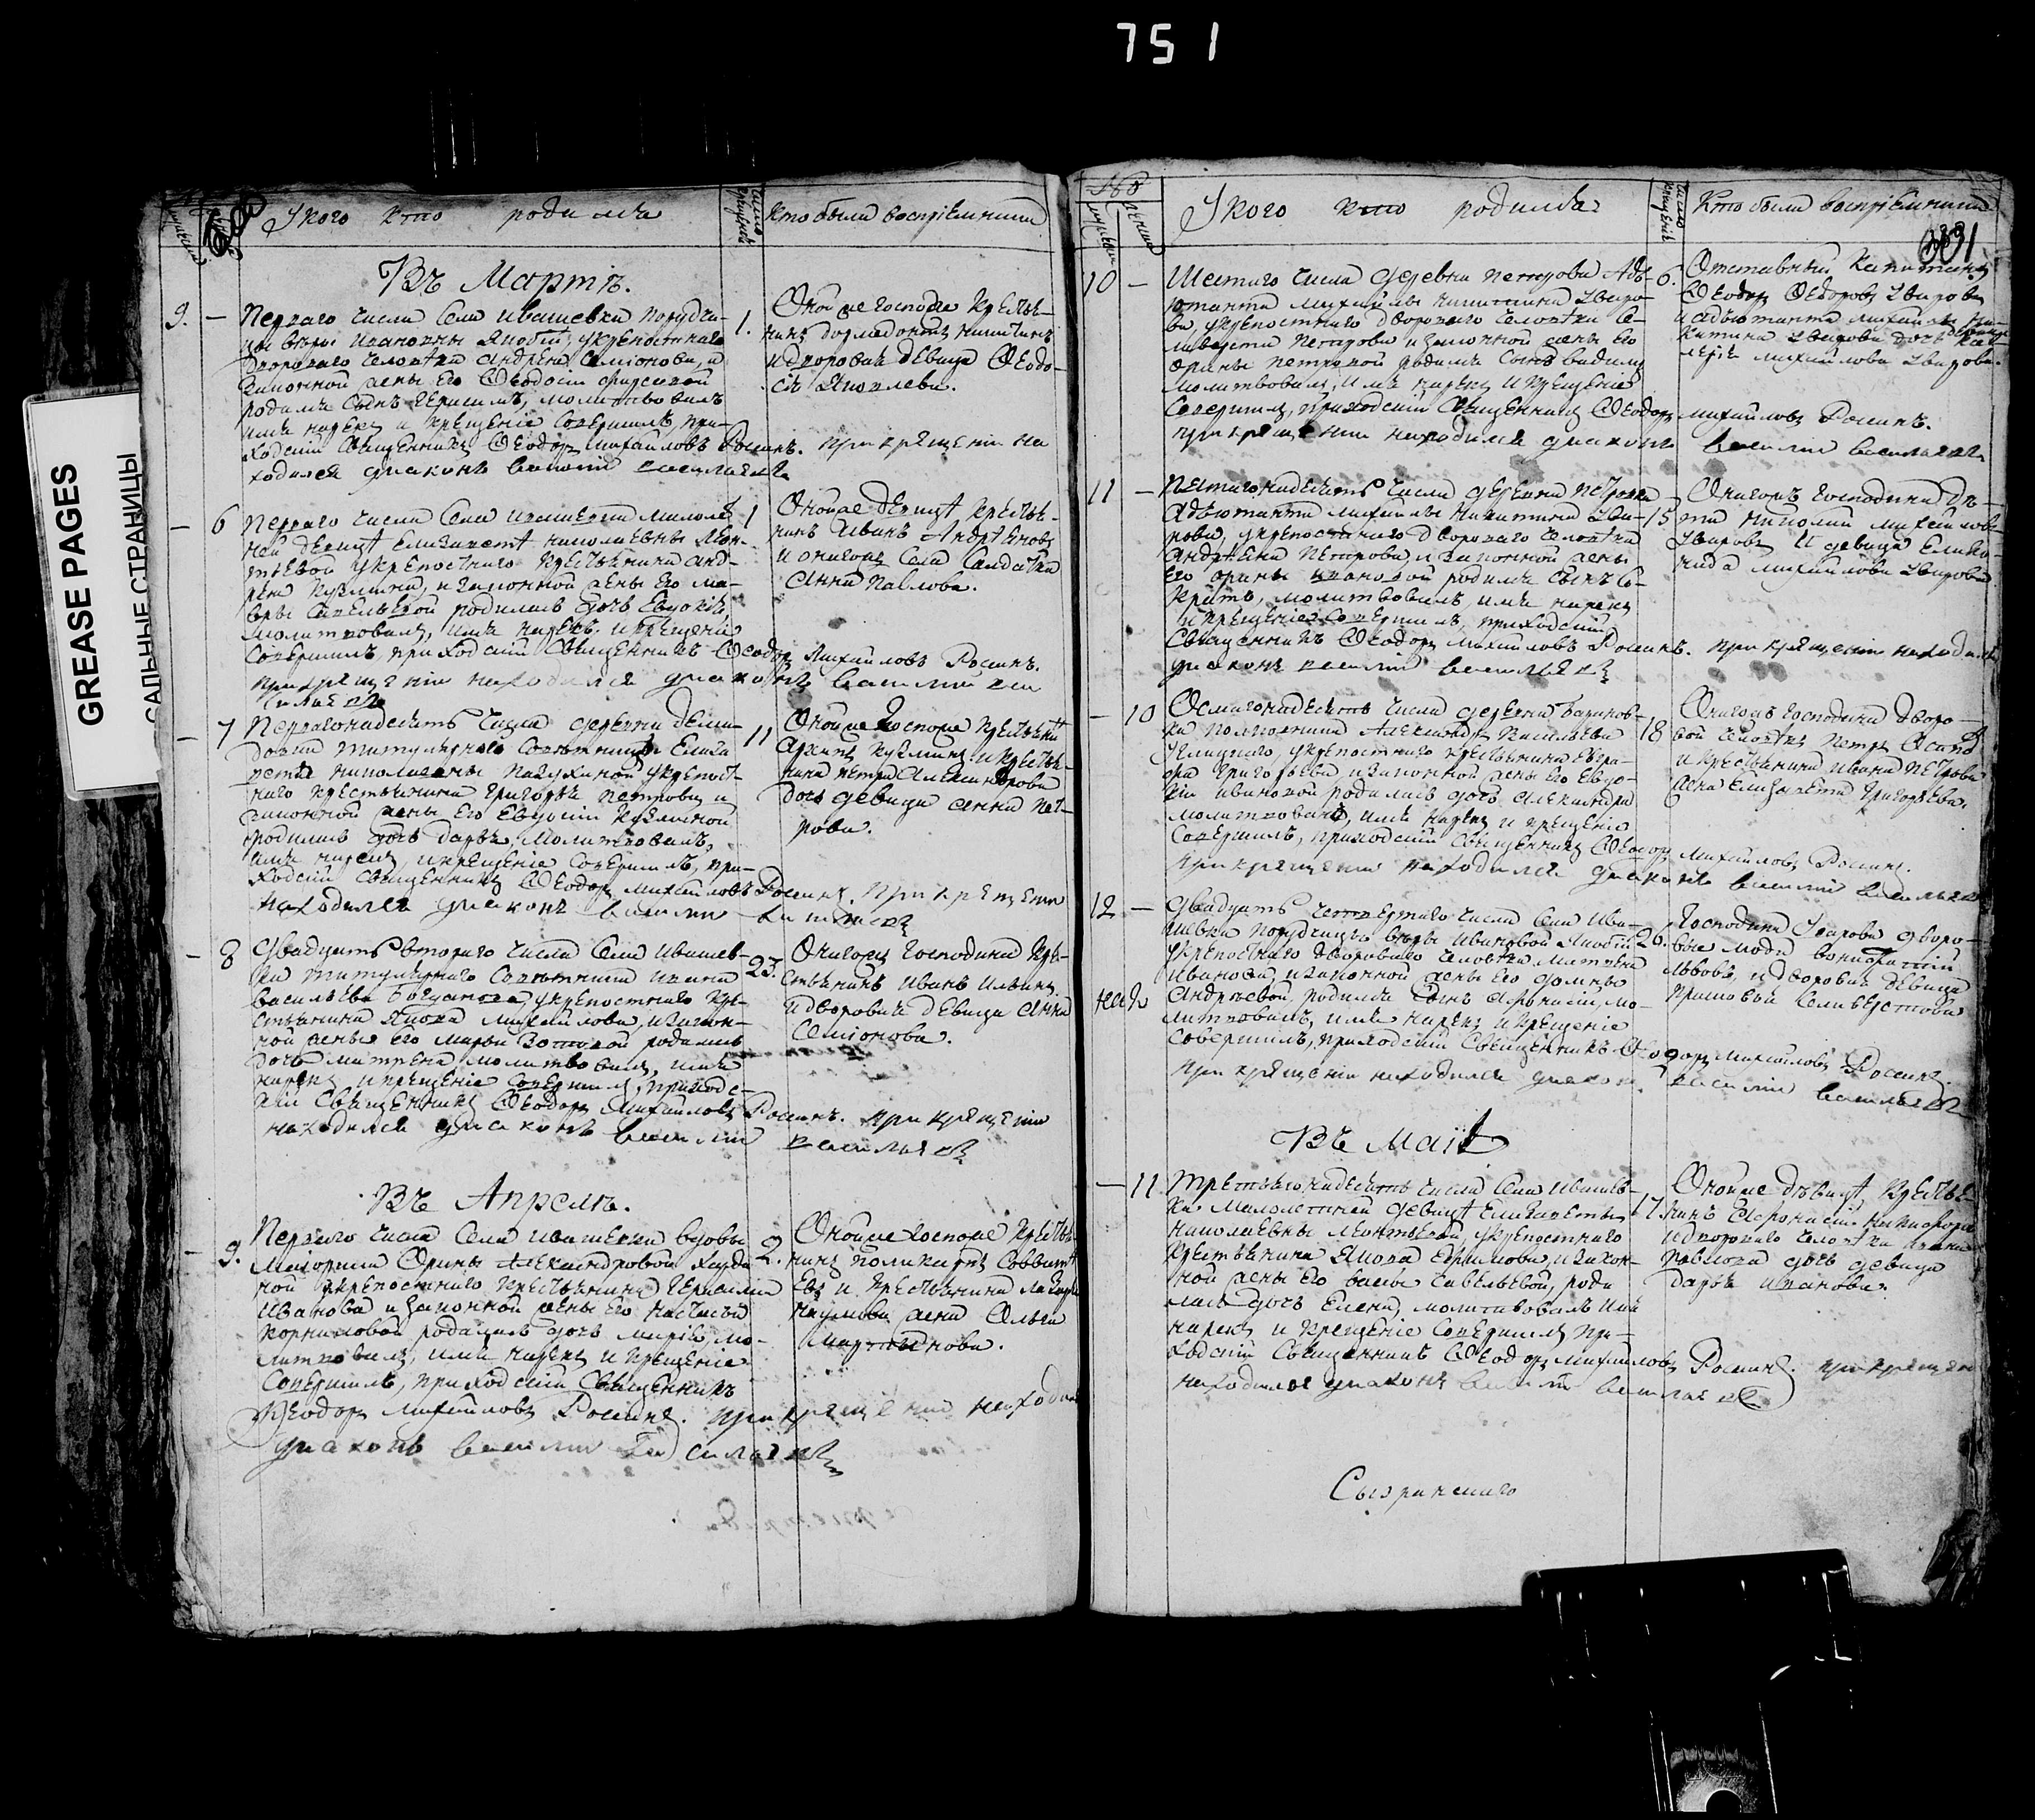 751
GREASE PAGES
САЛЬНЫЕ СТРАНИЦЫ
У кого кто родился
число крещенія
кто были воспріемники
Въ Мартѣ.
9. — Перваго числа села Ивашевки поруччи-
цы Вѣры Ивановны укрепостнаго
двороваго человѣка Андрея Семіонова, и
законной жены его Ѳеодосіи
родился сынъ Герасимъ, молитвовалъ
имя нарекъ и крещеніе совершилъ, при-
ходскій священникъ Ѳеодоръ Михайловъ Росинъ. при крещеніи на
ходился диаконъ Василій Васильевъ
1.
Оной же госпожи крестья-
нинъ Никитинъ
и дворовая девица Ѳеодо-
сья Яковлева.
— 6 Перваго числа села Ивашевки малолѣт
ней девицѣ Елизаветѣ Николаевны Леон-
тьевой укрепостнаго крестьянина Анд-
рея Кузмина, и законной жены его Ма-
вры Савельевой родилась дочь Евдокія,
молитвовалъ, имя нарекъ, и крещеніе
совершилъ, приходскій священникъ Ѳеодоръ Михайловъ Росинъ.
при крещеніи находился диаконъ Василій Ва
сильевъ
1
Оной же девицѣ крестья-
нинъ Иванъ Андрѣевъ
и онагожъ села солдатка
Анна Павлова.
— 7 Перваго надесять числа деревни Деми-
довки титулярнаго совѣтника Елиза
веты Николаевны укрепост-
наго крестьянина Григорья Петрова и
законной жены его Евдокіи Кузминой
родилась дочь Дарья, молитвовалъ,
имя нарекъ, и крещеніе совершилъ, при-
ходскій священникъ Ѳеодоръ Михайловъ Росинъ. при крещеніи
находился диаконъ Василій Васильевъ
11
Оной же госпожи крестьянинъ
Архипъ Кузминъ и крестья-
нина Петра Александрова
дочь девица Анна Пет-
рова.
— 8 Двадцать втораго числа села Ивашев-
ки титулярнаго совѣтника Ивана
Васильева Богданова, укрепостнаго кре-
стьянина Якова Михайлова, и закон-
ной жены его Марьи Зотовой родилась
дочь Матрена молитвовалъ, имя
нарекъ и крещеніе совершилъ, приход-
скій священникъ Ѳеодоръ Михайловъ Росинъ. при крещеніи
находился диаконъ Василій Васильевъ
23.
Онагожъ господина кре-
стьянинъ Иванъ Ильинъ.
и дворовая девица Анна
Семіонова.
Въ Апрелѣ.
— 9. Перваго числа села Ивашевки вдовы
маіорши Орины Александровой
укрепостнаго крестьянина Герасима
Иванова и законной жены его Настасьи
Корниловой родилась дочь Марія, мо-
литвовалъ, имя нарекъ и крещеніе
совершилъ, приходскій священникъ
Ѳеодоръ Михайловъ Росинъ. при крещеніи находил
диаконъ Василій Васильевъ
2.
Оной же госпожи крестья-
нинъ Поликарпъ Савватѣ
евъ и крестьянина Макара
Наумова жена Ольга
Мартынова.
У кого кто родился
число крещенія
Кто были воспріемники
331
10 — Шестаго числа деревни Петровки адъ-
ютанта Михайлы Никитина Уваро-
ва укрепостнаго двороваго человѣка Се-
ливерста Петрова и законной жены его
Орины Петровой родился сынъ Вадимъ
молитвовалъ, имя нарекъ и крещеніе
совершилъ, приходскій священникъ Ѳеодоръ Михайловъ Росинъ.
при крещеніи находился диаконъ Василій Васильевъ
6.
Отставный капитанъ
Ѳеодоръ Ѳеодоровъ Уваровъ
и адъютанта Михайлы Ни-
китина Уварова дочь девица
Михайлова Уварова.
11 — Пятагонадесять числа деревни Петровки
адъютанта Михайлы Никитина Ува-
рова, укрепостнаго двороваго человѣка
Андрѣяна Петрова, и законной жены
его Орины Ивановой родился сынъ Со-
кратъ, молитвовалъ, имя нарекъ
и крещеніе совершилъ, приходскій
священникъ Ѳеодоръ Михайловъ Росинъ. при крещеніи находился
диаконъ Василій Васильевъ
15
Онагожъ господина дѣ-
ти Николай Михайловъ
Уваровъ и девица Елико-
нида Михайлова Уварова
— 10 Осмагонадесять числа деревни
полковника Александра Васильева
Углицкаго, укрепостнаго крестьянина Евгра-
фа Григорьева, и законной жены его Евдо-
кіи Ивановой родилась дочь Александра
молитвовалъ, имя нарекъ и крещеніе
совершилъ, приходскій священникъ Ѳеодоръ Михайловъ Росинъ.
при крещеніи находился диаконъ Василій Васильевъ
18
Онагожъ господина дворо-
вой человѣкъ Петръ Осипов
и крестьянина Ивана Петрова
жена Елизавета Григорьева.
12 — Двадцать четвертаго числа села Ива-
шевки поруччицы Вѣры Ивановой
укрепостнаго двороваго человѣка Матвѣя
Иванова, и законной жены его Домны
Андрѣевой, родился сынъ Афонасій, мо-
литвовалъ, имя нарекъ и крещеніе
совершилъ, приходскій священникъ Ѳеодоръ Михайловъ Росинъ.
при крещеніи находился диакон Василій Васильевъ
Господина Уварова дворо-
вые люди Вонифатій
Львовъ, и дворовая девица
Селиверстова
Въ Маіѣ
— 11 Третьягонадесять числа села Ивашев-
ки малолетней девицѣ Елизаветы
Николаевны Леонтьевой, укрепостнаго
крестьянина Якова Ефимова, и закон-
ной жены его Савельевой, роди
лась дочь Елена, молитвовалъ имя
нарекъ и крещеніе совершилъ при-
ходскій священникъ Ѳеодоръ Михайловъ Росинъ. при крещени
находился диаконъ Василій Васильевъ
17.
Оной же дѣвицѣ, крестья-
нинъ Афонасій Никифоров
и двороваго человѣка Ивана
Павлова дочь девица
Дарья Иванова.
Сызранскаго